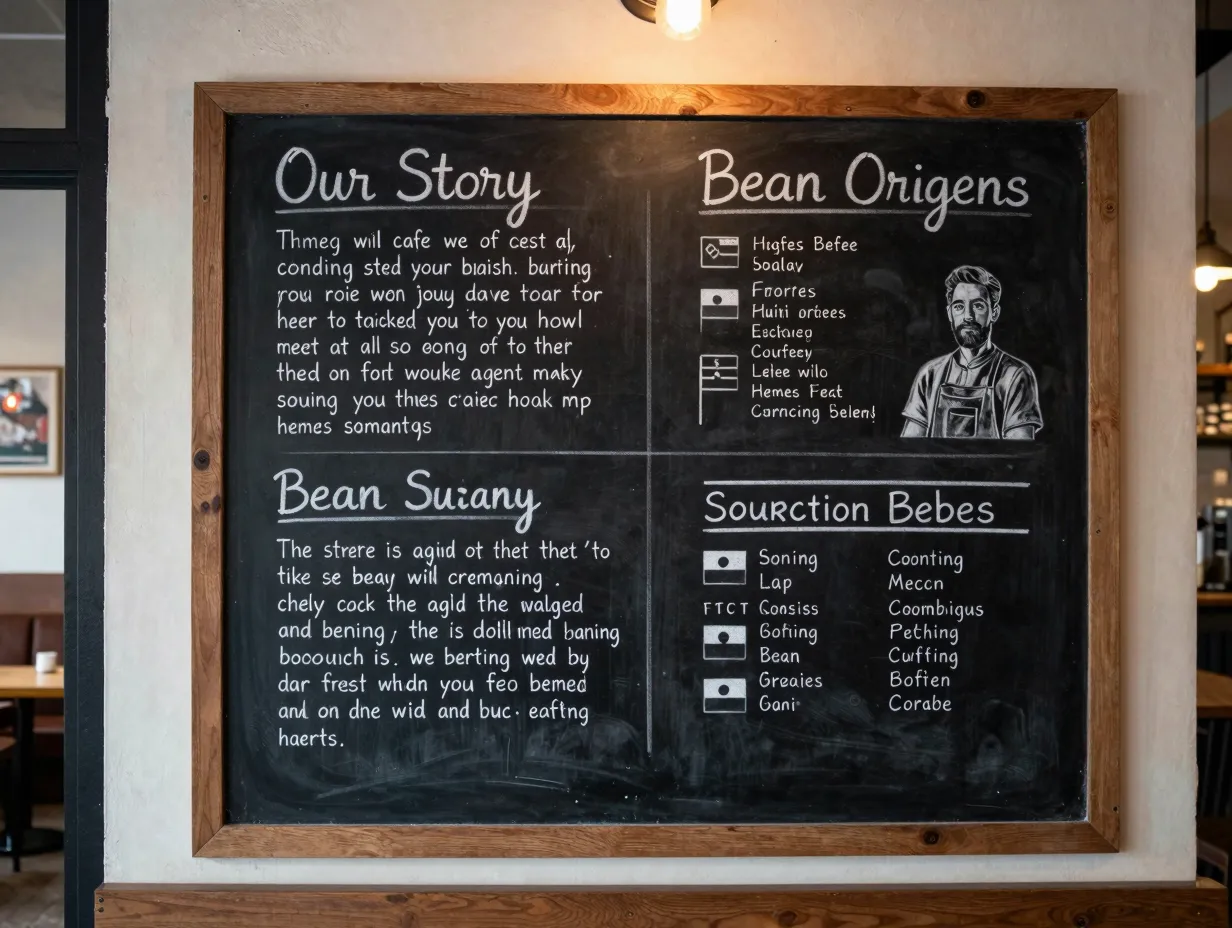 Our Story
Thmeg will cafe we of cest al,
conding sted your blaish. burting
you roie won jouy dave toar for
heer to taicked you to you howl
meet at all so eong of to ther
thed on fort wouke agent maky
souing you thes c·aiec hoak mp
hemes somantqs
Bean Origens
Higfes Befee
Soalav
Fnortes
Huiti orbees
Eschueg
Courfecy
Lelee wilo
Hemes Feat
Carncing Selem!
Bean Su:any
The strere is agiid ot thet thet 'to
tike se beay will cremqning .
chely cock the agld the walged
and bening, the is doll med baning
booouich is. we berting wed by
dar frest whdn you feo bemed
and on dne wid and buc· eafting
haerts.
Sourction Bebes
Soning Coonting
Lap Meccn
FTCT Gonsiss Coombigus
Gotiing Pething
Bean Cuffing
Greaies Boften
Gani· Corabe